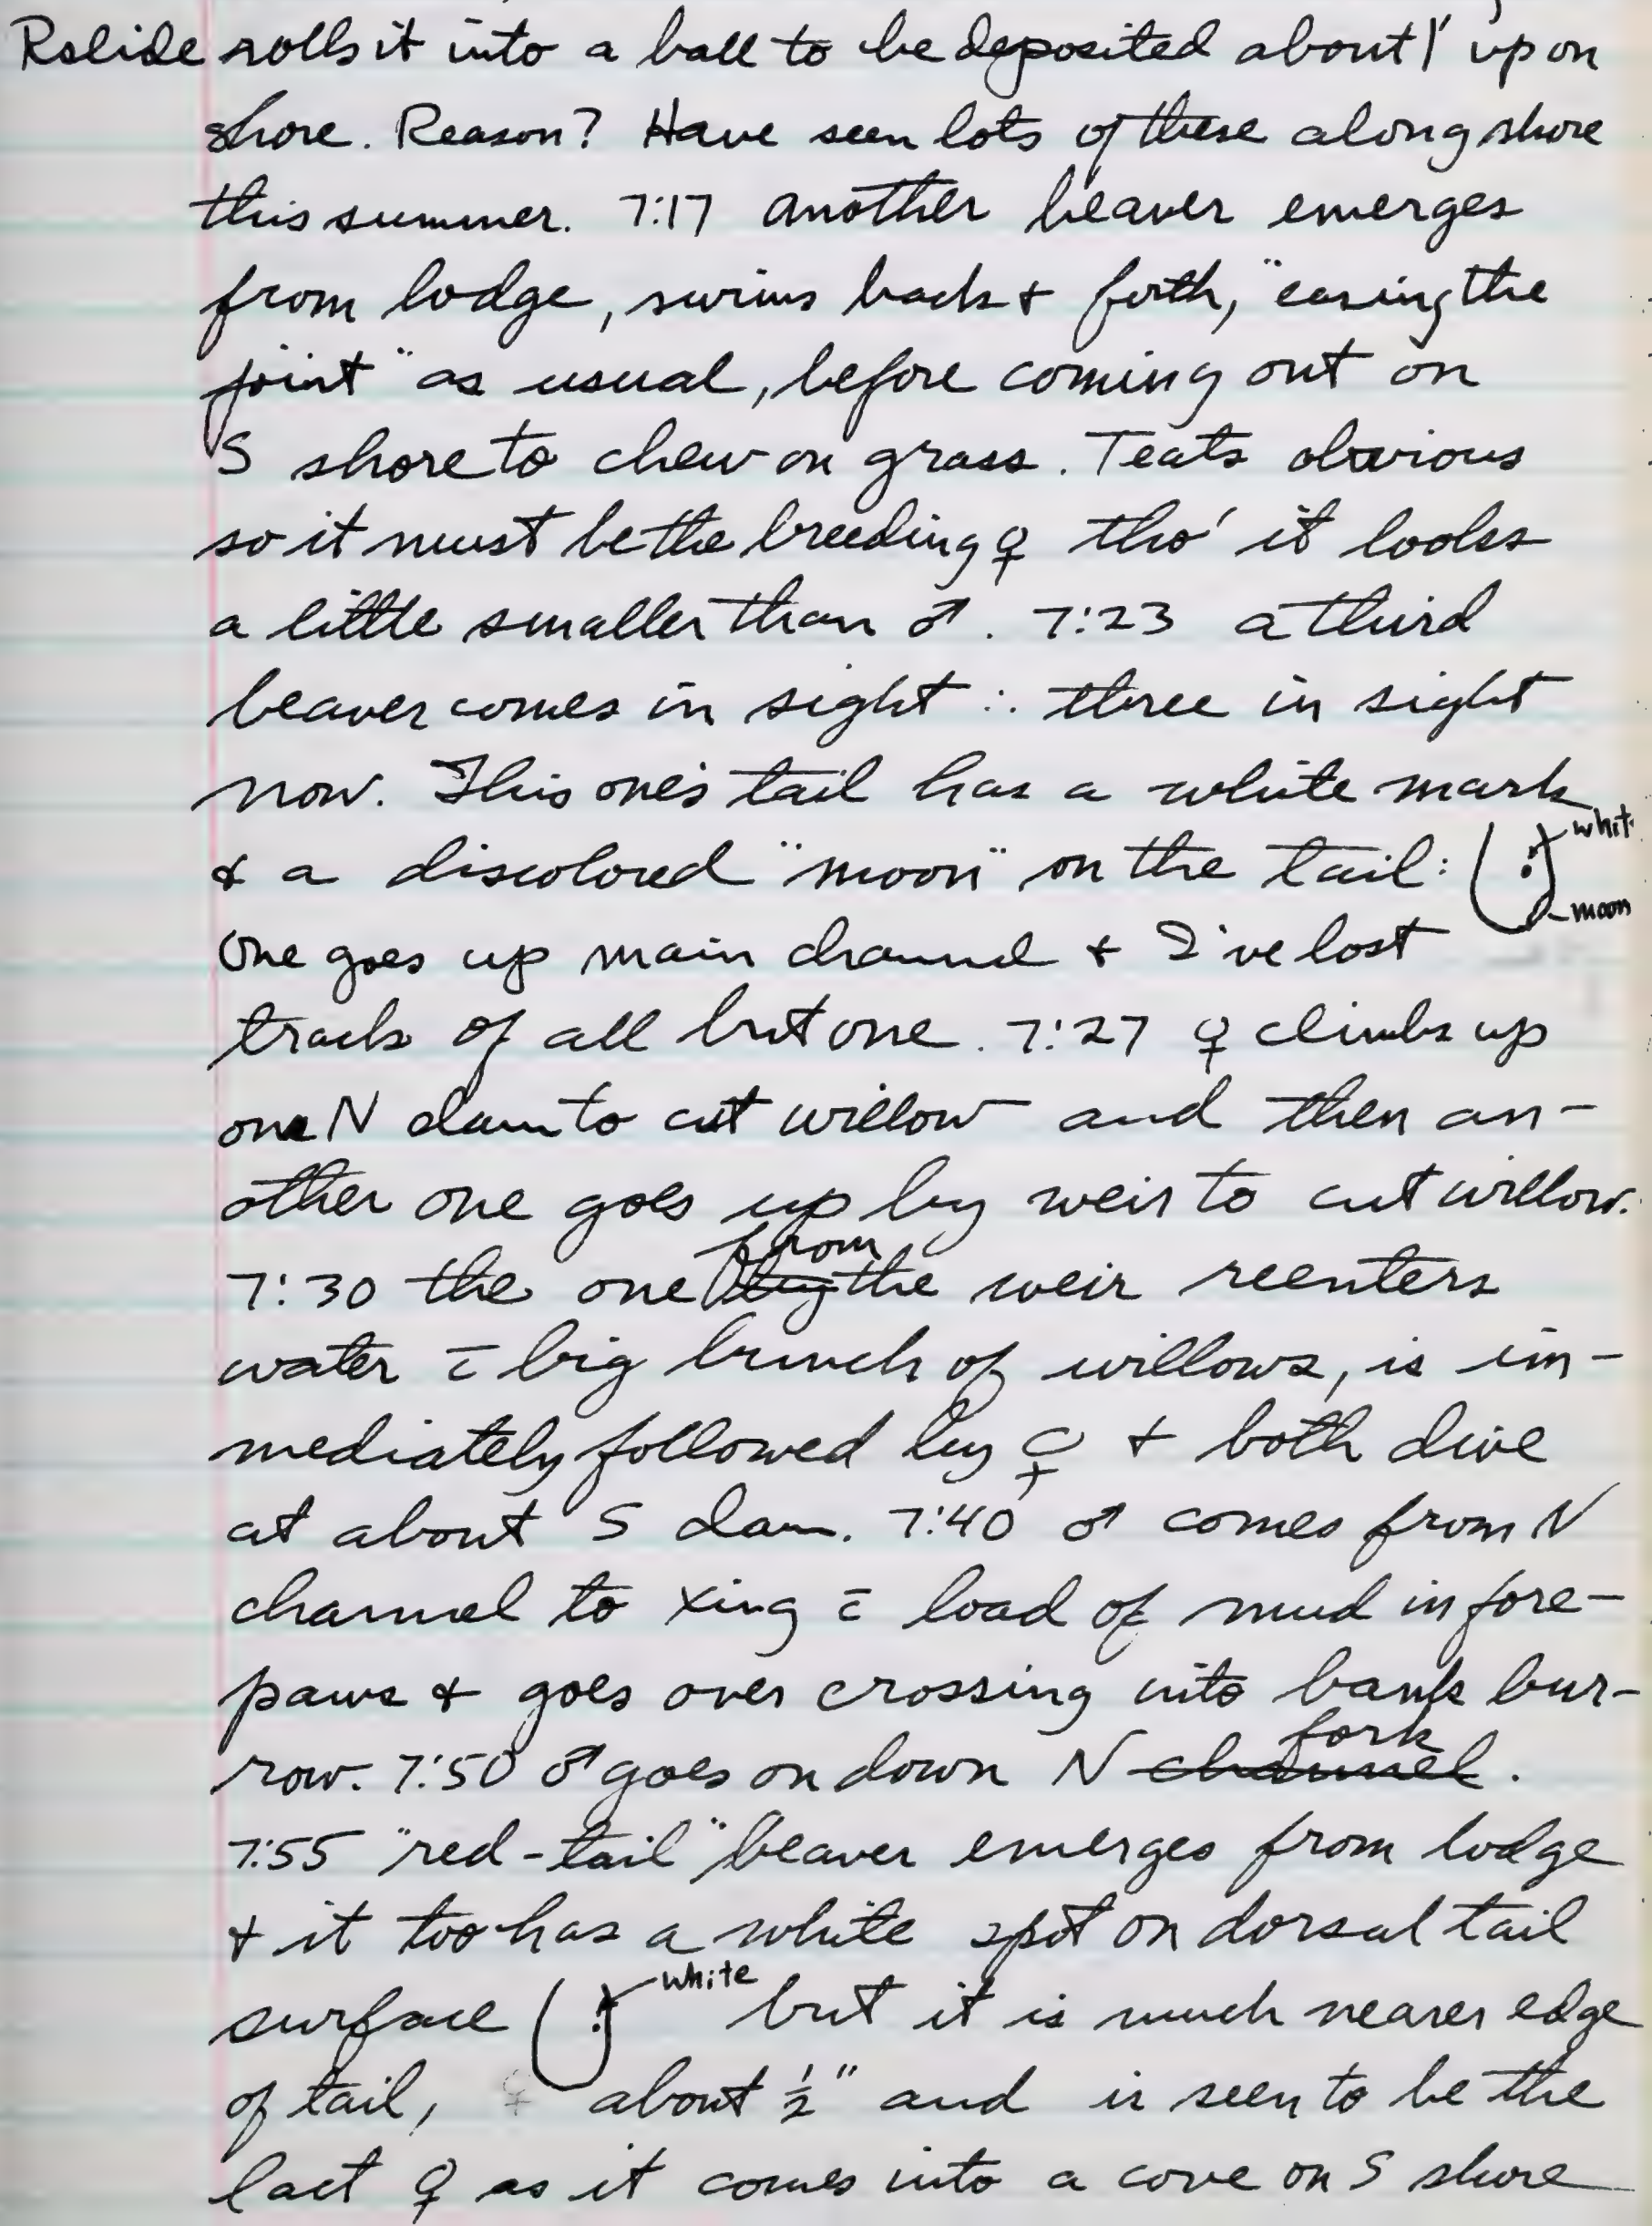 Rslide rolls it into a ball to be deposited about 1' up on
shore. Reason? Have seen lots of these along shore
this summer. 7:17 another beaver emerges
from lodge, swims back & forth, "casing the
joint" as usual, before coming out on
S shore to chew on grass. Teats obvious
so it must be the breeding ♀ tho' it looks
a little smaller than ♂. 7:23 a third
beaver comes in sight ∴ three in sight
now. This one's tail has a white mark
& a discolored "moon" on the tail: whit
moon
One goes up main channel & I've lost
track of all but one. 7:27 ♀ climbs up
one N dam to cut willow and then an-
other one goes up by weir to cut willow.
from
7:30 the one by the weir reenters
water c̄ big bunch of willows, is im-
mediately followed by ♀ & both dive
at about S dam. 7:40 ♂ comes from N
channel to Xing c̄ load of mud in fore-
paws & goes over crossing into bank bur-
fork
row. 7:50 ♂ goes on down N channel.
7:55 "red-tail" beaver emerges from lodge
& it too has a white spot on dorsal tail
surface white but it is much nearer edge
of tail, ♀ about ½" and is seen to be the
lact ♀ as it comes into a cove on S shore